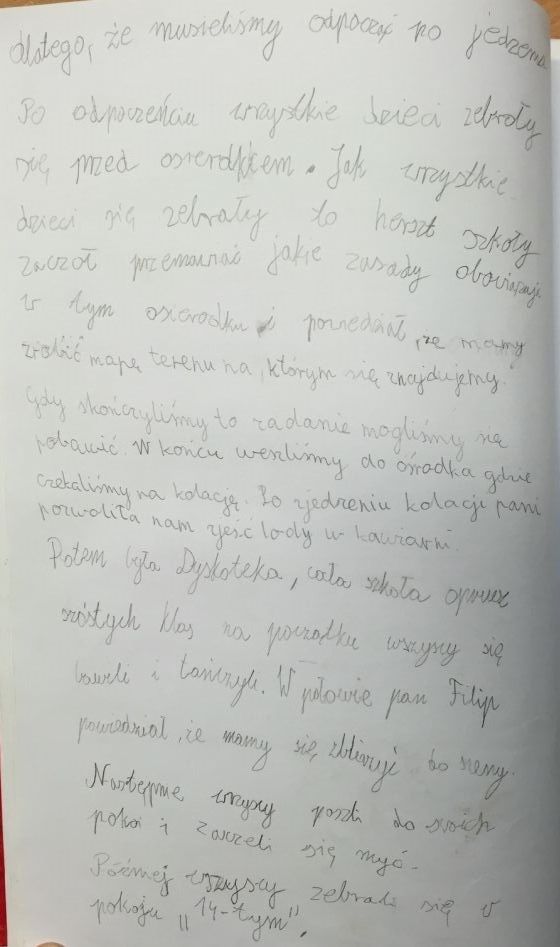 dlatego, że musieliśmy odpocząć po jedzeniu
Po odpoczeńciu wszystkie dzieci zebrały
się przed osierdkiem. Jak wszystkie
dzieci się zebrały to herszt szkoły
zaczoł przemawiać jakie zasady obowiązuje
w tym oserodku i powiedział, że mamy
zrobić mapę terenu na, którym się znajdujemy.
Gdy skończyliśmy to zadanie mogliśmy się
pobawić. W końcu weszliśmy do ośrodka gdzie
czekaliśmy na kolację. Po zjedzeniu kolacji pani
pozwoliła nam zjeść lody w kawiarni.
Potem była Dyskoteka, cała szkoła oprucz
szóstych klas na początku wszyscy się
bawili i tańczyli. W połowie pan Filip
powiedział, że mamy się zbliżyć do sceny.
Następnie wszyscy poszli do swoich
pokoi i zaczeli się myć.
Póżniej wszyscy zebrali się w
pokoju „14-tym".